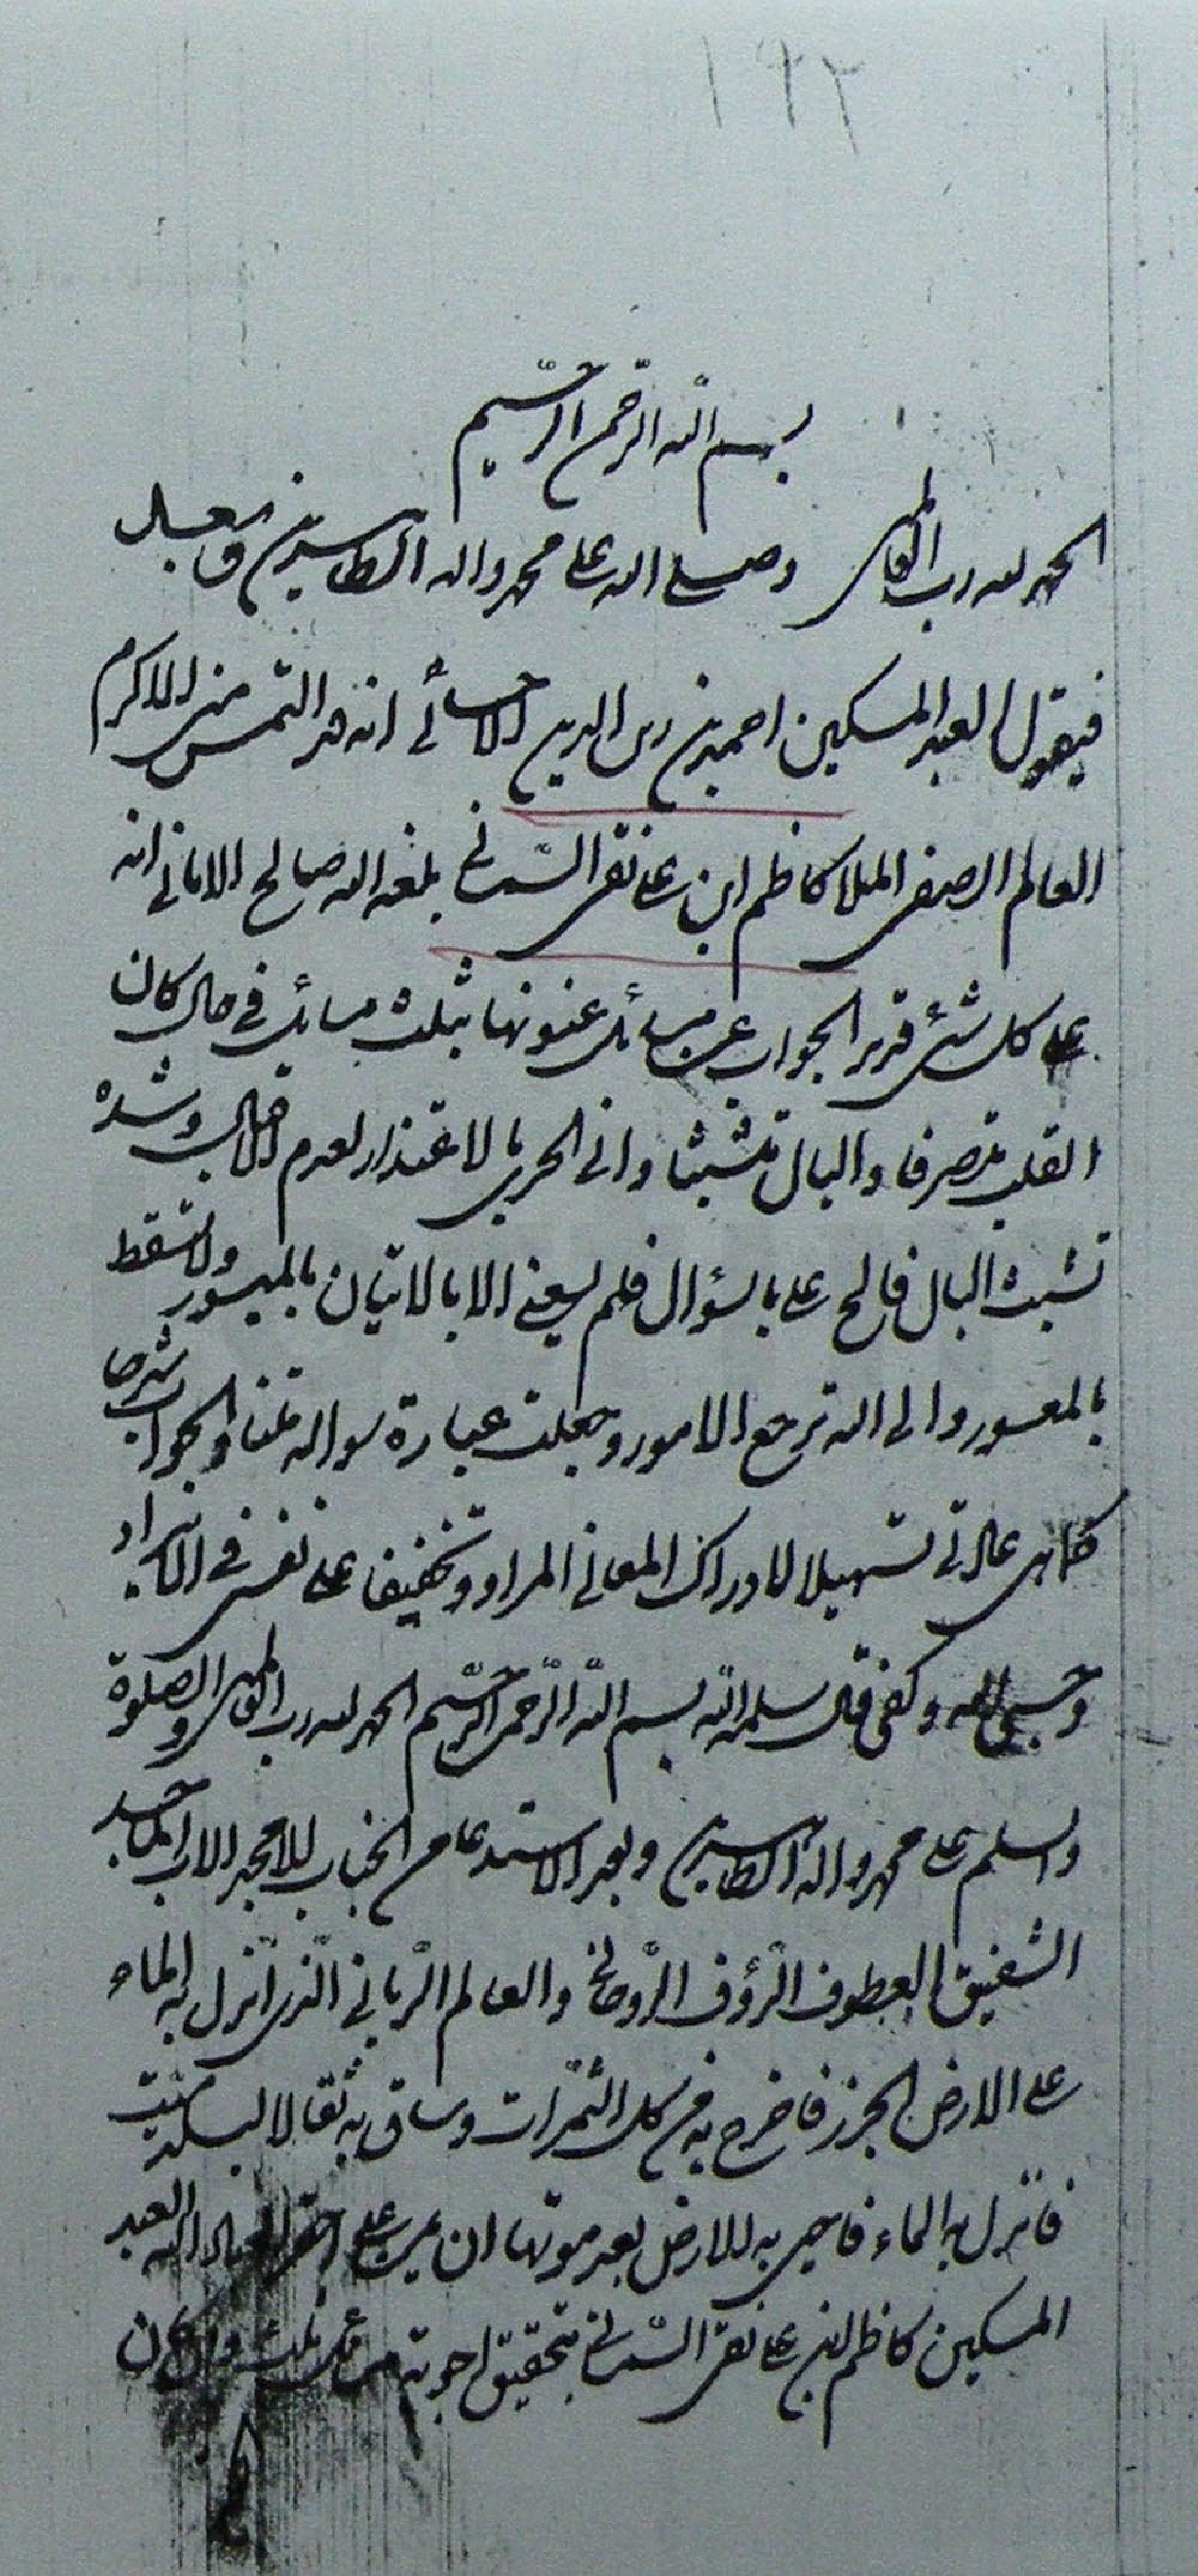 ١٩٢
بسم الله الرحمن الرحيم
الحمد لله رب العالمين وصلى الله على محمد واله الطاهرين اما بعد
فيقول العبد المسكين احمد بن زين الدين الاحسائي انه قد التمس مني الاكرم
العالم الصفي الملا كاظم ابن علي نقي السمناني بلغه الله صالح الاماني انه
على كل شئ قدير الجواب عن مسائل عنونها بثلث مسائل في حال كان
القلب متصرفا والبال متشتتا واني الحري بالاعتذار لعدم اقبال وشدة
تشتت البال فالح علي بالسؤال فلم يسعني الا بالاتيان بالميسور ولا يسقط
بالمعسور والى الله ترجع الامور وجعلت عبارة سواله متنا والجواب شرحا
كما هي عادتي تسهيلا لادراك المعاني المراد وتخفيفا على نفسي في الايراد
وحسبي الله وكفى قال سلمه الله بسم الله الرحمن الرحيم الحمد لله رب العالمين والصلوة
والسلم على محمد واله الطاهرين وبعد الاستدعا من الجناب الامجد الاب الماجد
الشفيق العطوف الرؤف الروحاني والعالم الرباني الذي انزل به الماء
على الارض الجرز فاخرج به من كل الثمرات وساق به ثقالا لبلد ميت
فانزل به الماء فاحيى به الارض بعد موتها ان يمن على احقر عباد الله العبد
المسكين كاظم بن علي نقي السمناني بتحقيق اجوبة مسائل ثلث وان كان